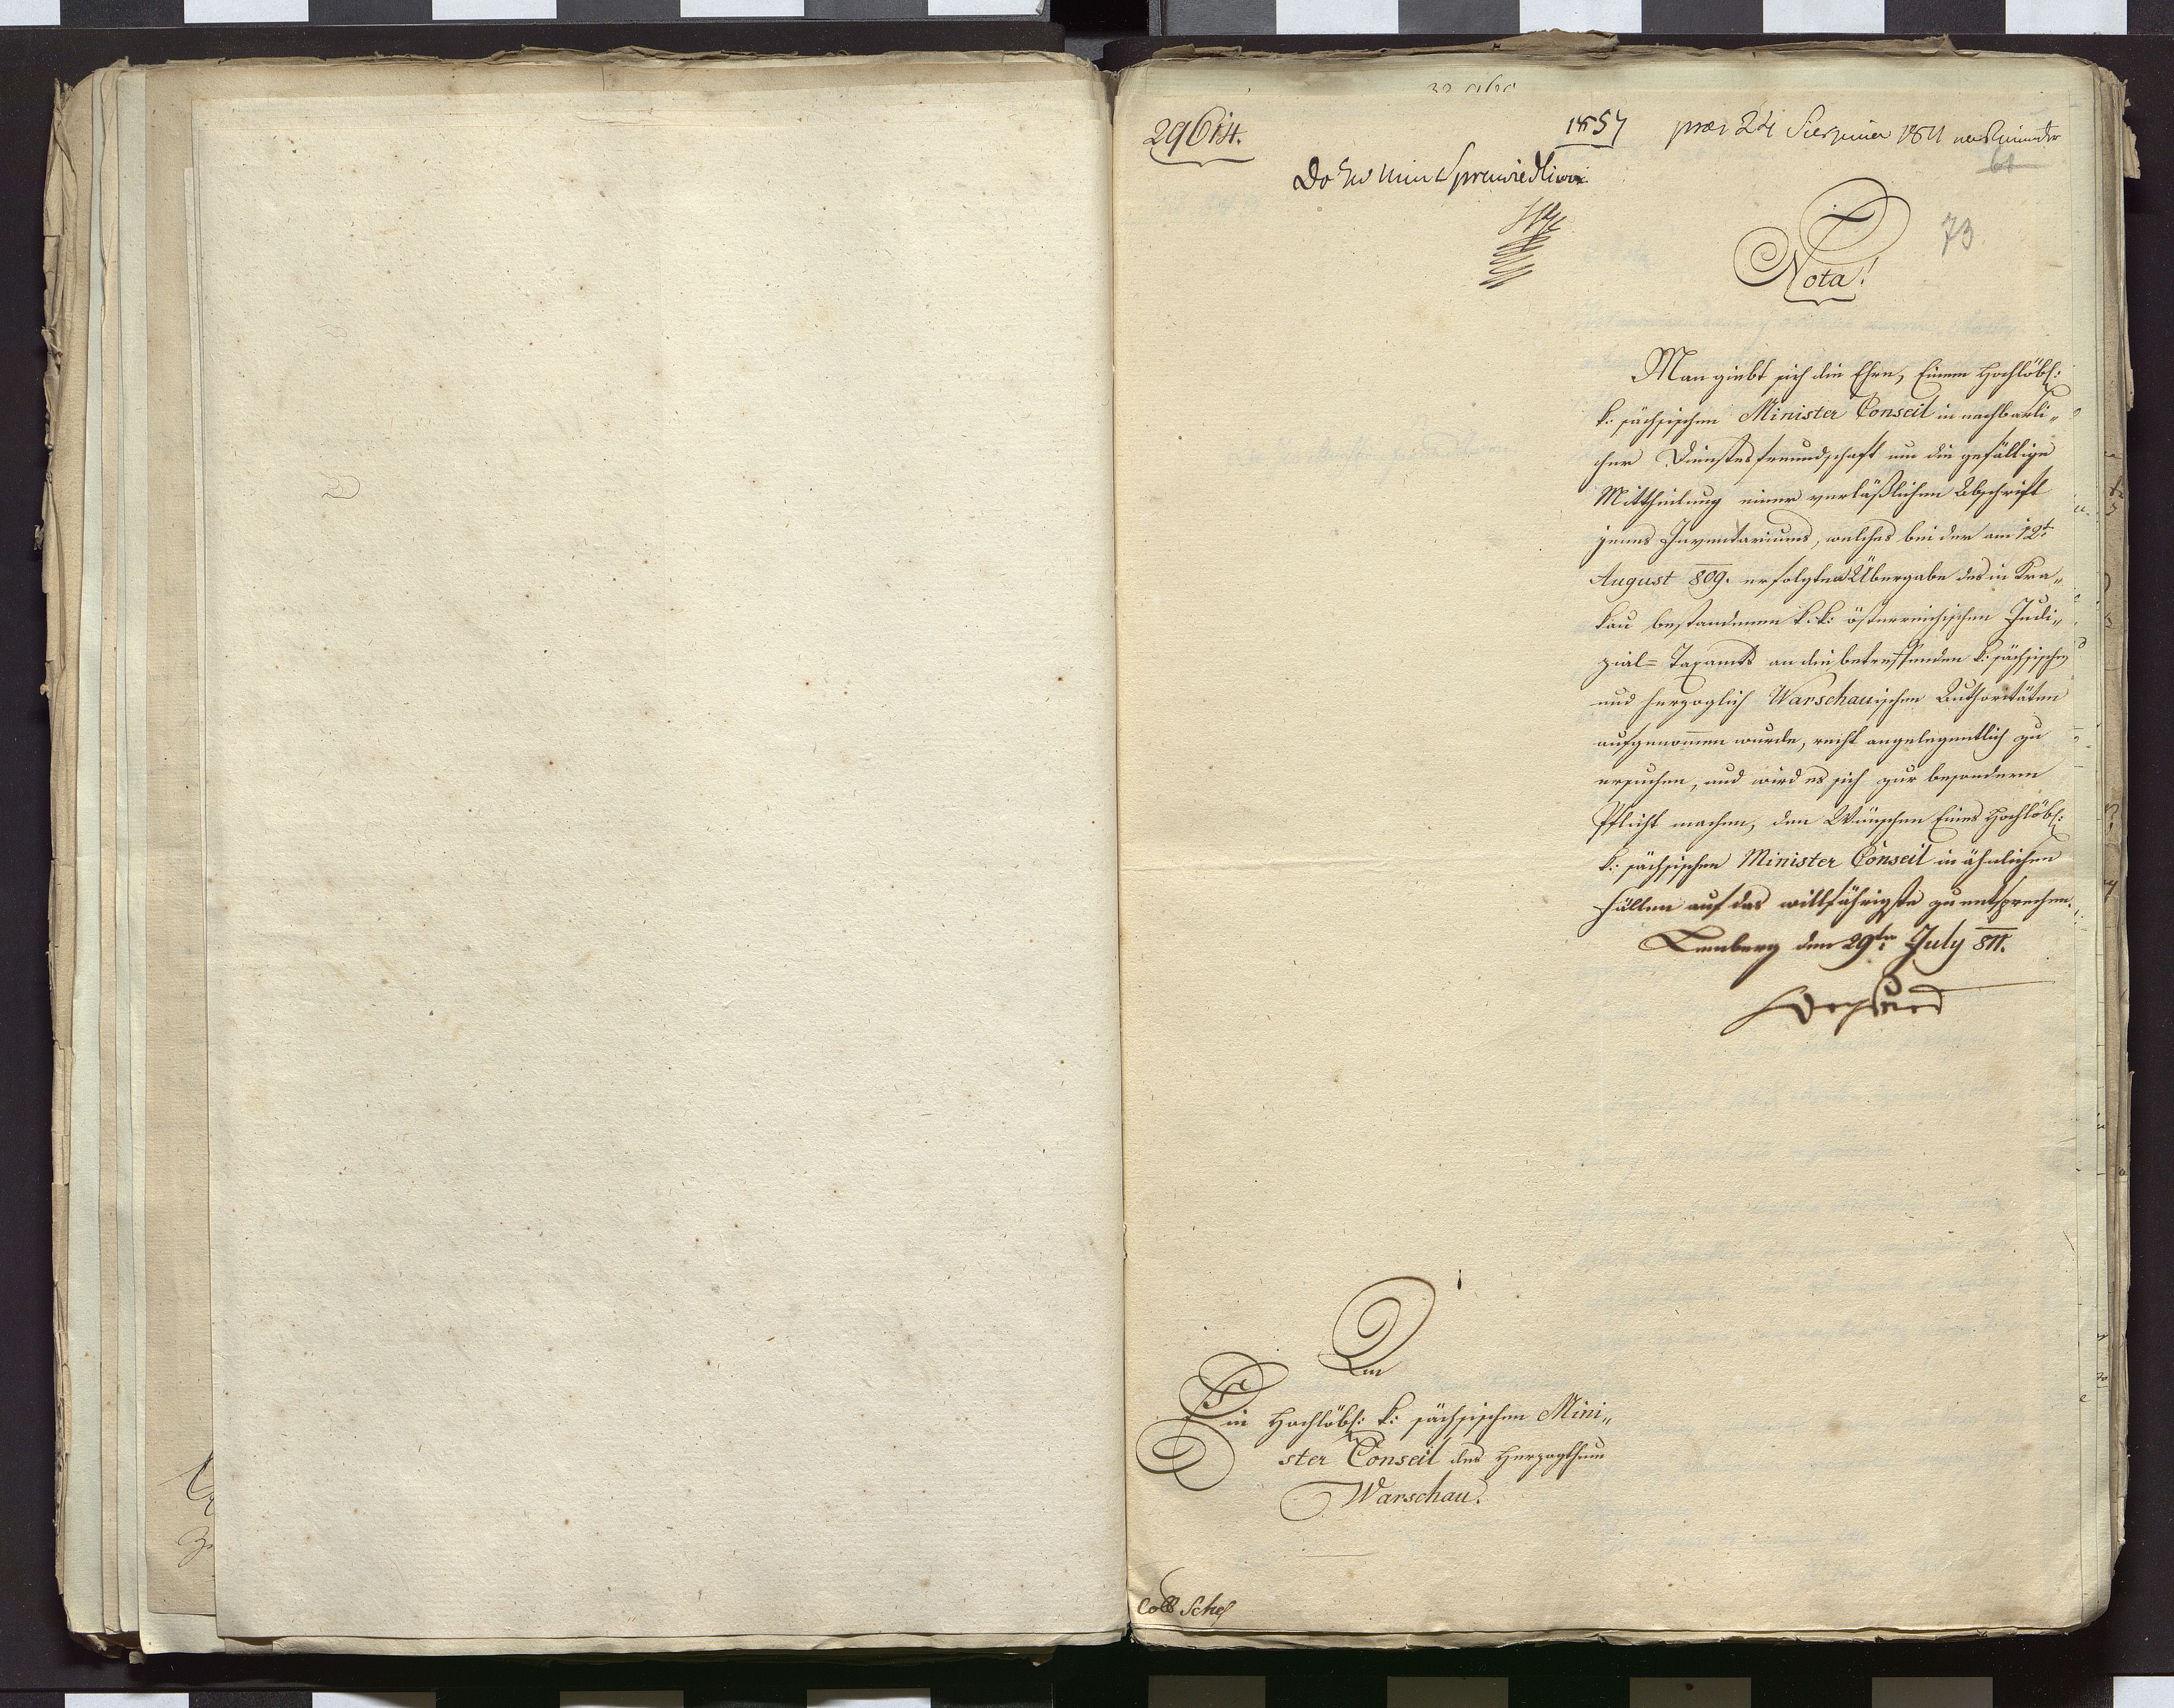 29614.
1857
præs 24 Sierpnia 1811
Do JW Min Sprawiedliwości
61
73
Nota!
Man giebt sich die Ehre, Einem Hochlöbl:
k: sächsischen Minister Conseil in nachbarli„
cher Dienstesfreundschaft um die gefällige
Mittheilung einer verläßlichen Abschrift
jenes Inventariums, welches bei der am 12t
August 809. erfolgten Übergabe des in Kra„
kau bestandenen k: k: österreichischen Judi„
zial= Taxamts an die betreffenden k: sächsischen
und herzoglich Warschauischen Authoritäten
aufgenommen wurde, recht angelegentlich zu
ersuchen, und wird es sich zur besondern
Pflicht machen, den Wünschen Eines Hochlöbl:
k: sächsischen Minister Conseil in ähnlichen
Fällen auf das willfährigste zu entsprechen.
Lemberg den 29ten July 811.
An
Ein Hochlöbl: k: sächsischen Mini„
ster Conseil des Herzogthum
Warschau.
Coll Schef